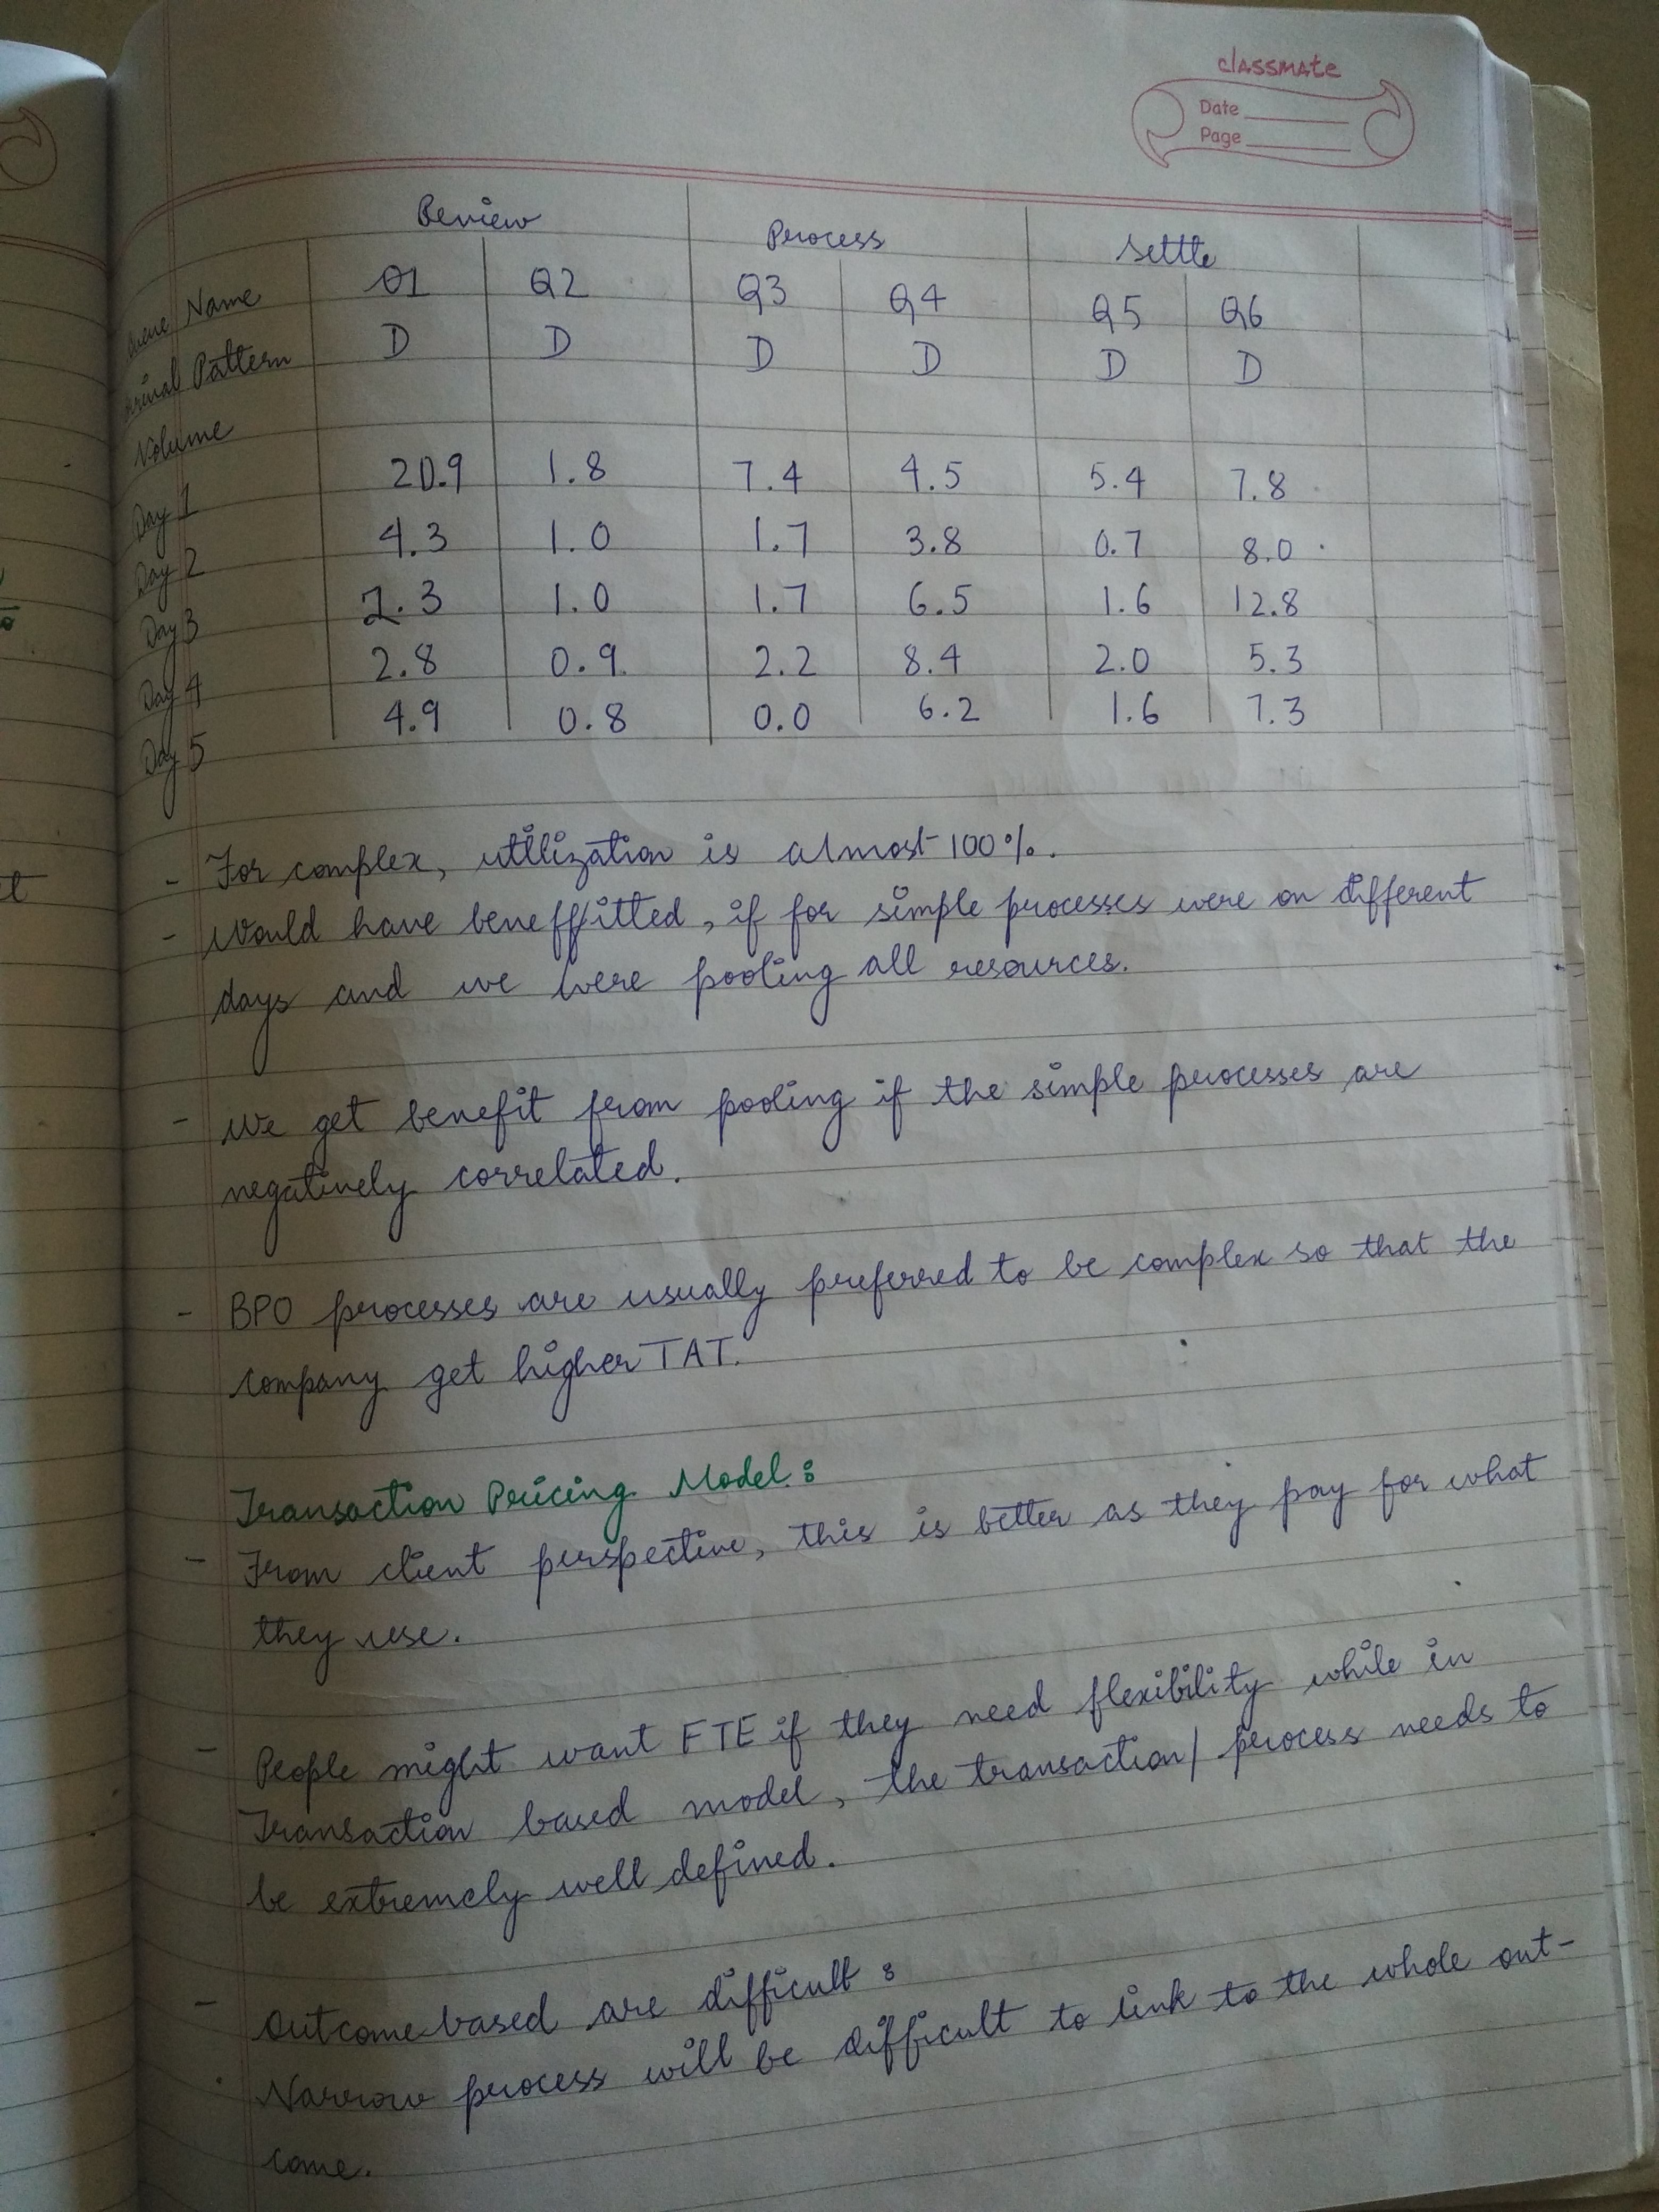 classmate
Date
Page
Review Process Settle
Queue Name Q1 Q2 Q3 Q4 Q5 Q6
Arrival Pattern D D D D D D
Volume
Day 1 20.9 1.8 7.4 4.5 5.4 7.8
Day 2 4.3 1.0 1.7 3.8 0.7 8.0
Day 3 2.3 1.0 1.7 6.5 1.6 12.8
Day 4 2.8 0.9 2.2 8.4 2.0 5.3
Day 5 4.9 0.8 0.0 6.2 1.6 7.3
- For complex, utilization is almost 100%.
- Would have beneffitted, if for simple processes were on different
days and we were pooling all resources.
- We get benefit from pooling if the simple processes are
negatively correlated.
- BPO processes are usually preferred to be complex so that the
company get higher TAT.
Transaction Pricing Model:
- From client perspective, this is better as they pay for what
they use.
- People might want FTE if they need flexibility while in
Transaction based model, the transaction/process needs to
be extremely well defined.
- Outcome based are difficult:
Narrow process will be difficult to link to the whole out-
come.